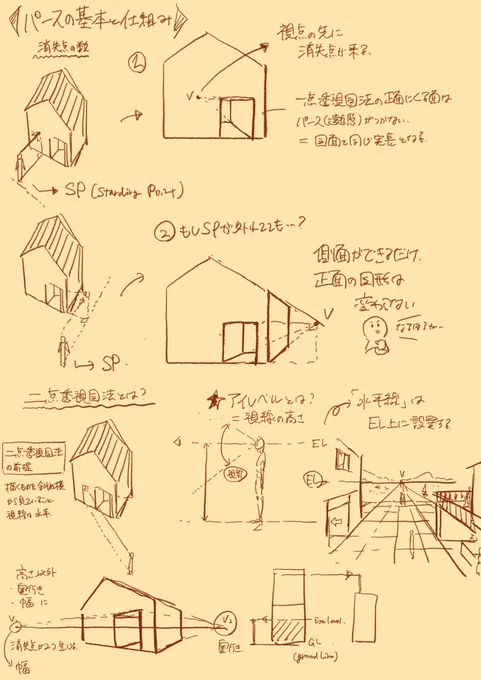 パースの基本と仕組み
消失点の数
①
視点の先に
消失点が来る。
V
一点透視図法の正面にくる面は
パース(遠近感)がつかない。
= 図面と同じ実長となる。
SP (Standing Point)
② もしSPが外にでても…?
側面ができるだけ、
正面の図形は
変わらない
なるほどなー
V
SP
二点透視図法とは?
★アイレベルとは?
= 視線の高さ
「水平線」は
EL上に設置する
二点透視図法
の前提
描くものを斜め横
から見ていること
視線は水平
視野
EL
EL
V
高さ以外
・奥行き
・幅に
V
消失点が2つ生じる。
幅
V2
奥行き
Eye level
GL
(ground line)